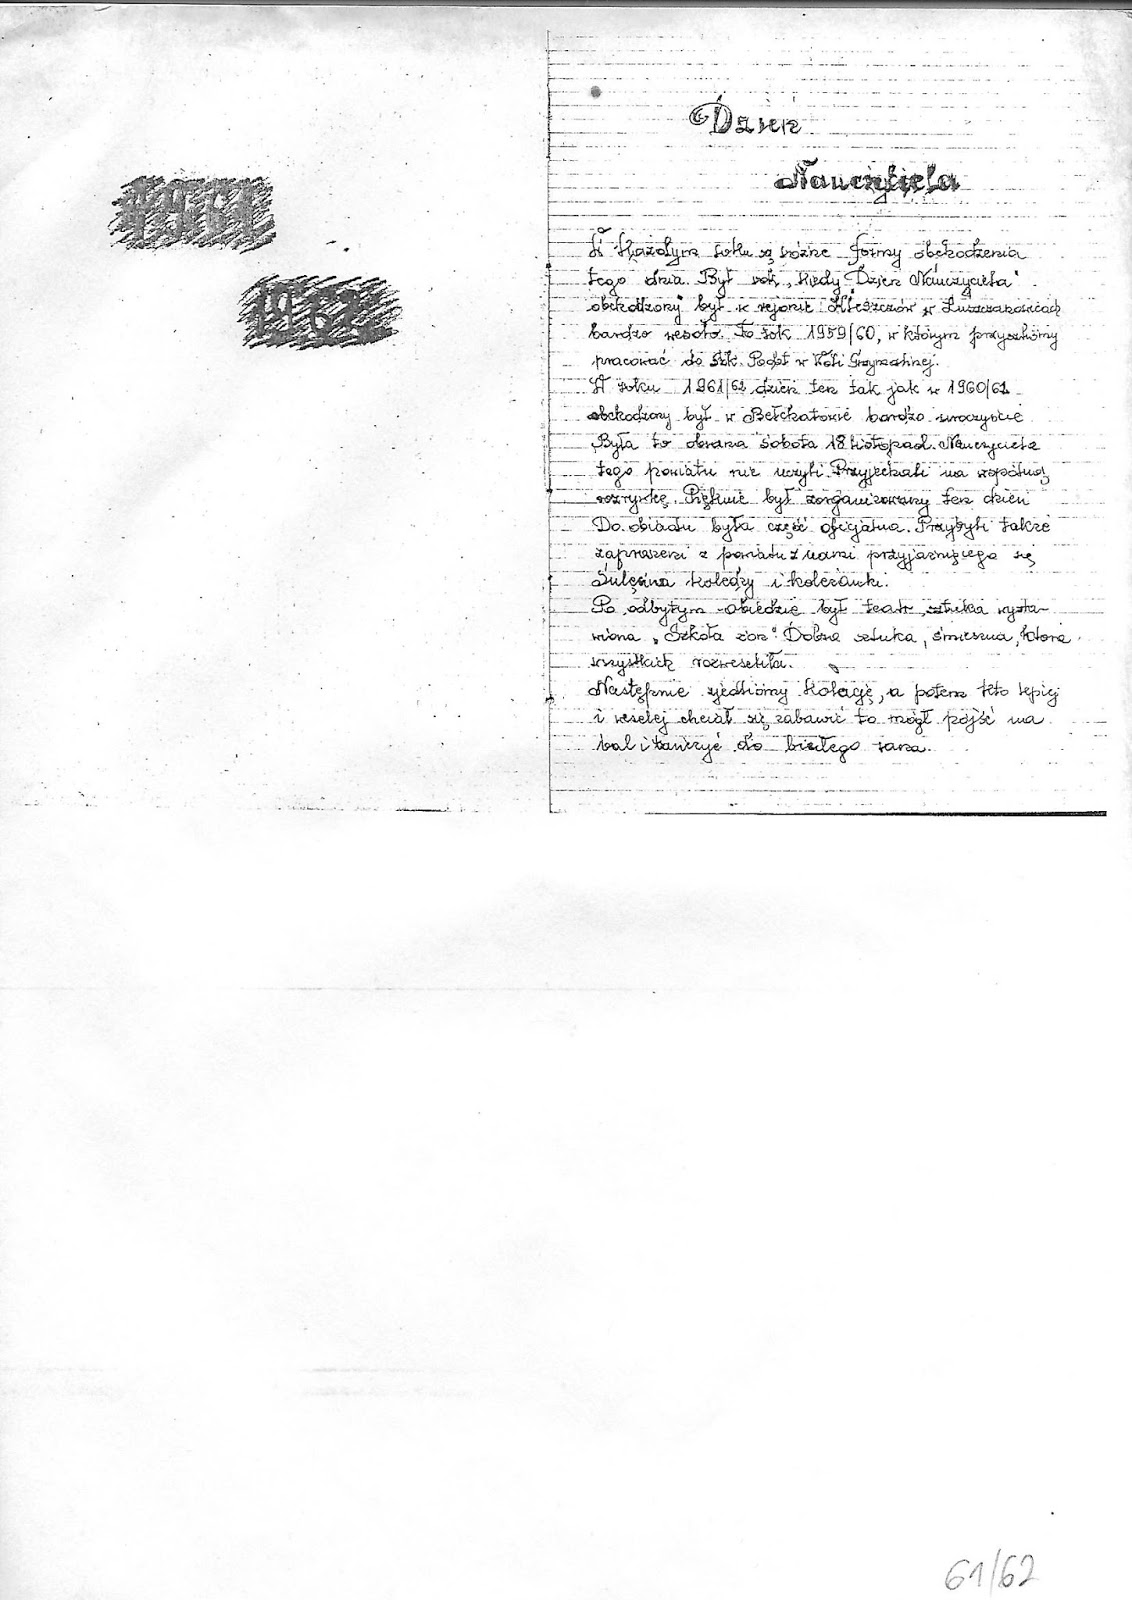 1961
1962
Dzień
Nauczyciela
W każdym roku są różne formy obchodzenia
tego dnia. Był rok, kiedy "Dzień Nauczyciela"
obchodzony był w rejonie Kleszczów w Łuszczanowicach
bardzo wesoło. To rok 1959/60, w którym przyszliśmy
pracować do Szk. Podst w Woli Grzymalinej.
W roku 1961/62 dzień ten tak jak w 1960/61
obchodzony był w Bełchatowie bardzo uroczyście
Była to obrana sobota 18 listopad. Nauczyciele
tego powiatu nie uczyli. Przyjechali na wspólną
rozrywkę. Pięknie był zorganizowany ten dzień
Do obiadu była część oficjalna. Przybyli także
zaproszeni z powiatu z nami przyjaźniącego się
koledzy i koleżanki.
Po odbytym obiedzie był teatr, sztuka wysta-
wiona "Szkoła żon" Dobra sztuka, śmieszna, która
wszystkich rozweseliła.
Następnie zjedliśmy kolację, a potem kto lepiej
i weselej chciał się zabawić to mógł pójść na
bal i tańczyć do białego rana.
61/62